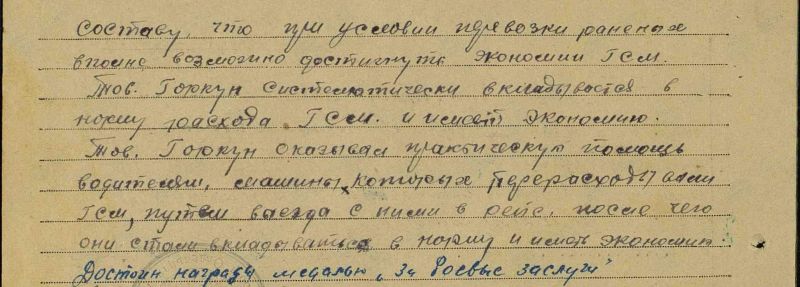 составу, что при условии перевозки раненых
вполне возможно достигнуть экономии ГСМ.
Тов. Горкун систематически вкладывается в
норму расхода ГСМ. и имеет экономию.
Тов. Горкун оказывал практическую помощь
водителям, машины которых перерасходывали
ГСМ, путем выезда с ними в рейс, после чего
они стали вкладываться в норму и иметь экономию.
Достоин награды медалью „За боевые заслуги"